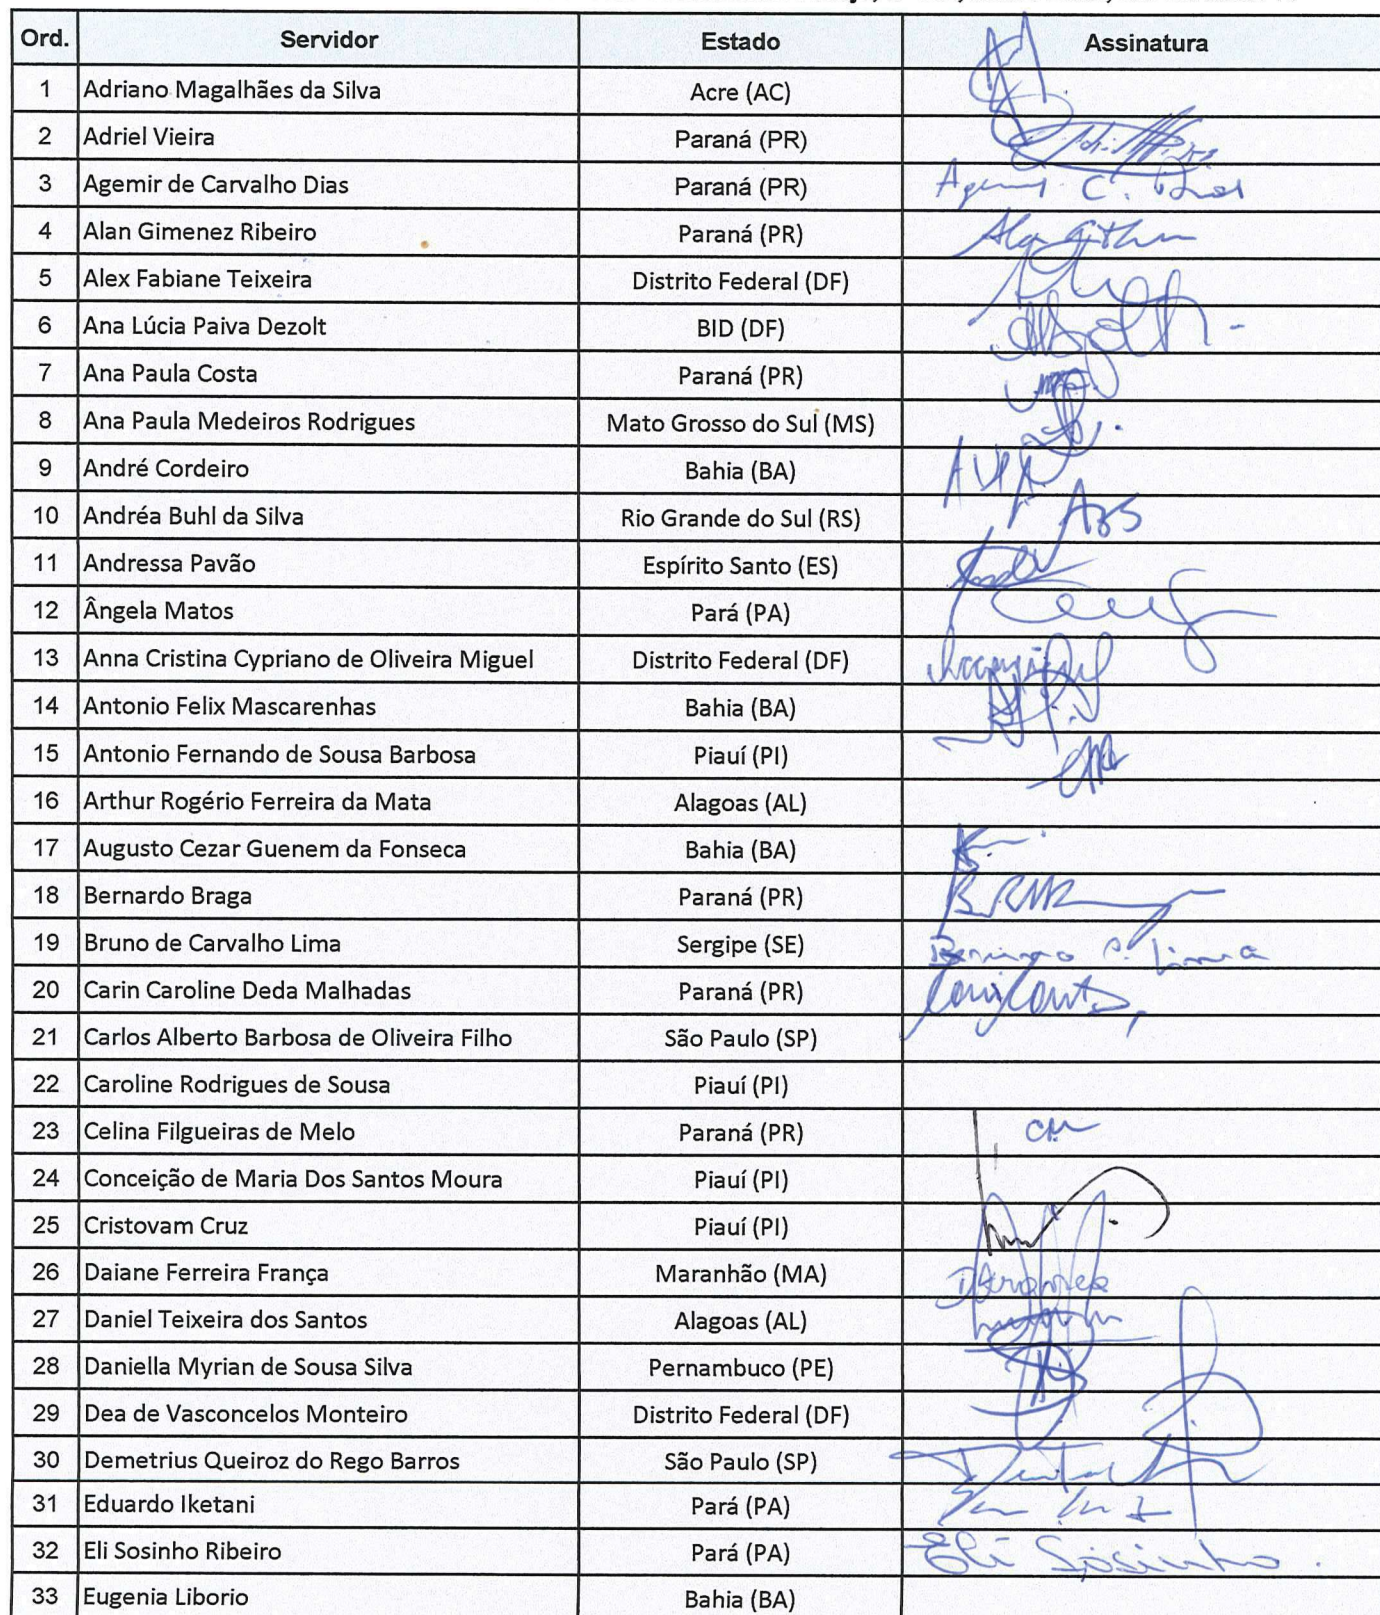 Ord. Servidor Estado Assinatura
1 Adriano Magalhães da Silva Acre (AC)
2 Adriel Vieira Paraná (PR)
3 Agemir de Carvalho Dias Paraná (PR) C. Dias
4 Alan Gimenez Ribeiro Paraná (PR)
5 Alex Fabiane Teixeira Distrito Federal (DF)
6 Ana Lúcia Paiva Dezolt BID (DF)
7 Ana Paula Costa Paraná (PR)
8 Ana Paula Medeiros Rodrigues Mato Grosso do Sul (MS)
9 André Cordeiro Bahia (BA)
10 Andréa Buhl da Silva Rio Grande do Sul (RS) ABS
11 Andressa Pavão Espírito Santo (ES)
12 Ângela Matos Pará (PA)
13 Anna Cristina Cypriano de Oliveira Miguel Distrito Federal (DF)
14 Antonio Felix Mascarenhas Bahia (BA)
15 Antonio Fernando de Sousa Barbosa Piauí (PI)
16 Arthur Rogério Ferreira da Mata Alagoas (AL)
17 Augusto Cezar Guenem da Fonseca Bahia (BA)
18 Bernardo Braga Paraná (PR)
19 Bruno de Carvalho Lima Sergipe (SE) Lima
20 Carin Caroline Deda Malhadas Paraná (PR)
21 Carlos Alberto Barbosa de Oliveira Filho São Paulo (SP)
22 Caroline Rodrigues de Sousa Piauí (PI)
23 Celina Filgueiras de Melo Paraná (PR)
24 Conceição de Maria Dos Santos Moura Piauí (PI)
25 Cristovam Cruz Piauí (PI)
26 Daiane Ferreira França Maranhão (MA)
27 Daniel Teixeira dos Santos Alagoas (AL)
28 Daniella Myrian de Sousa Silva Pernambuco (PE)
29 Dea de Vasconcelos Monteiro Distrito Federal (DF)
30 Demetrius Queiroz do Rego Barros São Paulo (SP)
31 Eduardo Iketani Pará (PA)
32 Eli Sosinho Ribeiro Pará (PA) Eli Sosinho.
33 Eugenia Liborio Bahia (BA)